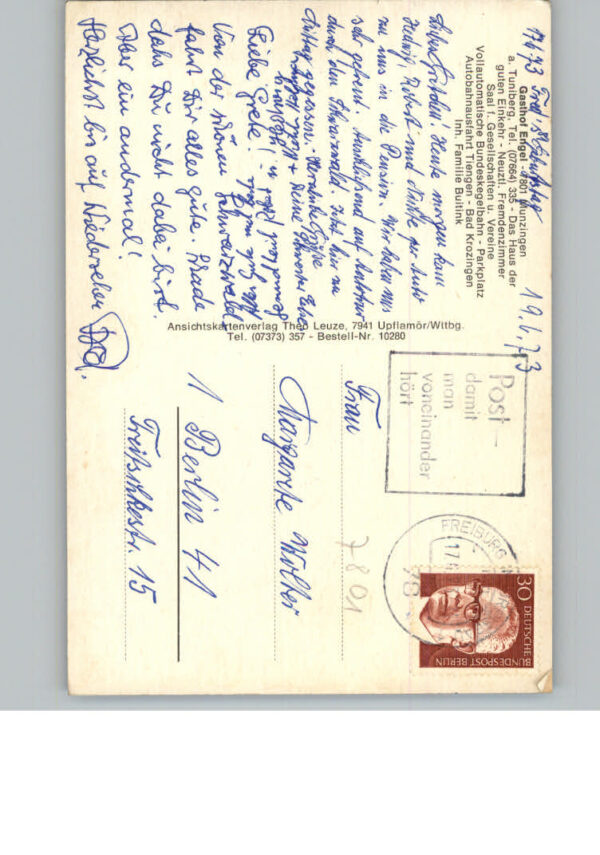 17.6.73
Gasthof Engel - 7801 Munzingen
a. Tuniberg, Tel. (07664) 335 - Das Haus der
guten Einkehr - Neuztl. Fremdenzimmer
Saal f. Gesellschaften u. Vereine
Vollautomatische Bundeskegelbahn - Parkplatz
Autobahnausfahrt Tiengen - Bad Krozingen
Inh. Familie Buitink
Heute morgen kam
Hedwig, Robert und
zu uns in die Pension. Wir haben uns
sehr gefreut. Anschließend
durch den Schwarzwald. Jetzt
Mittag gegessen. Herzliche Grüße
Deine Schwester Else
Liebe Grete!
Von der schönen Schwarzwald
fahrt Dir alles gute. Schade
dass Du nicht dabei bist.
Aber ein andermal!
Herzlichst bis auf Wiedersehen
Ansichtskartenverlag Theo Leuze, 7941 Upflamör/Wttbg.
Tel. (07373) 357 - Bestell-Nr. 10280
19.6.73
Post-
damit
man
voneinander
hört
FREIBURG
78
30
DEUTSCHE
BUNDESPOST BERLIN
Frau
Margarete Wolter
1 Berlin 41
Treitschkestr. 15
7801